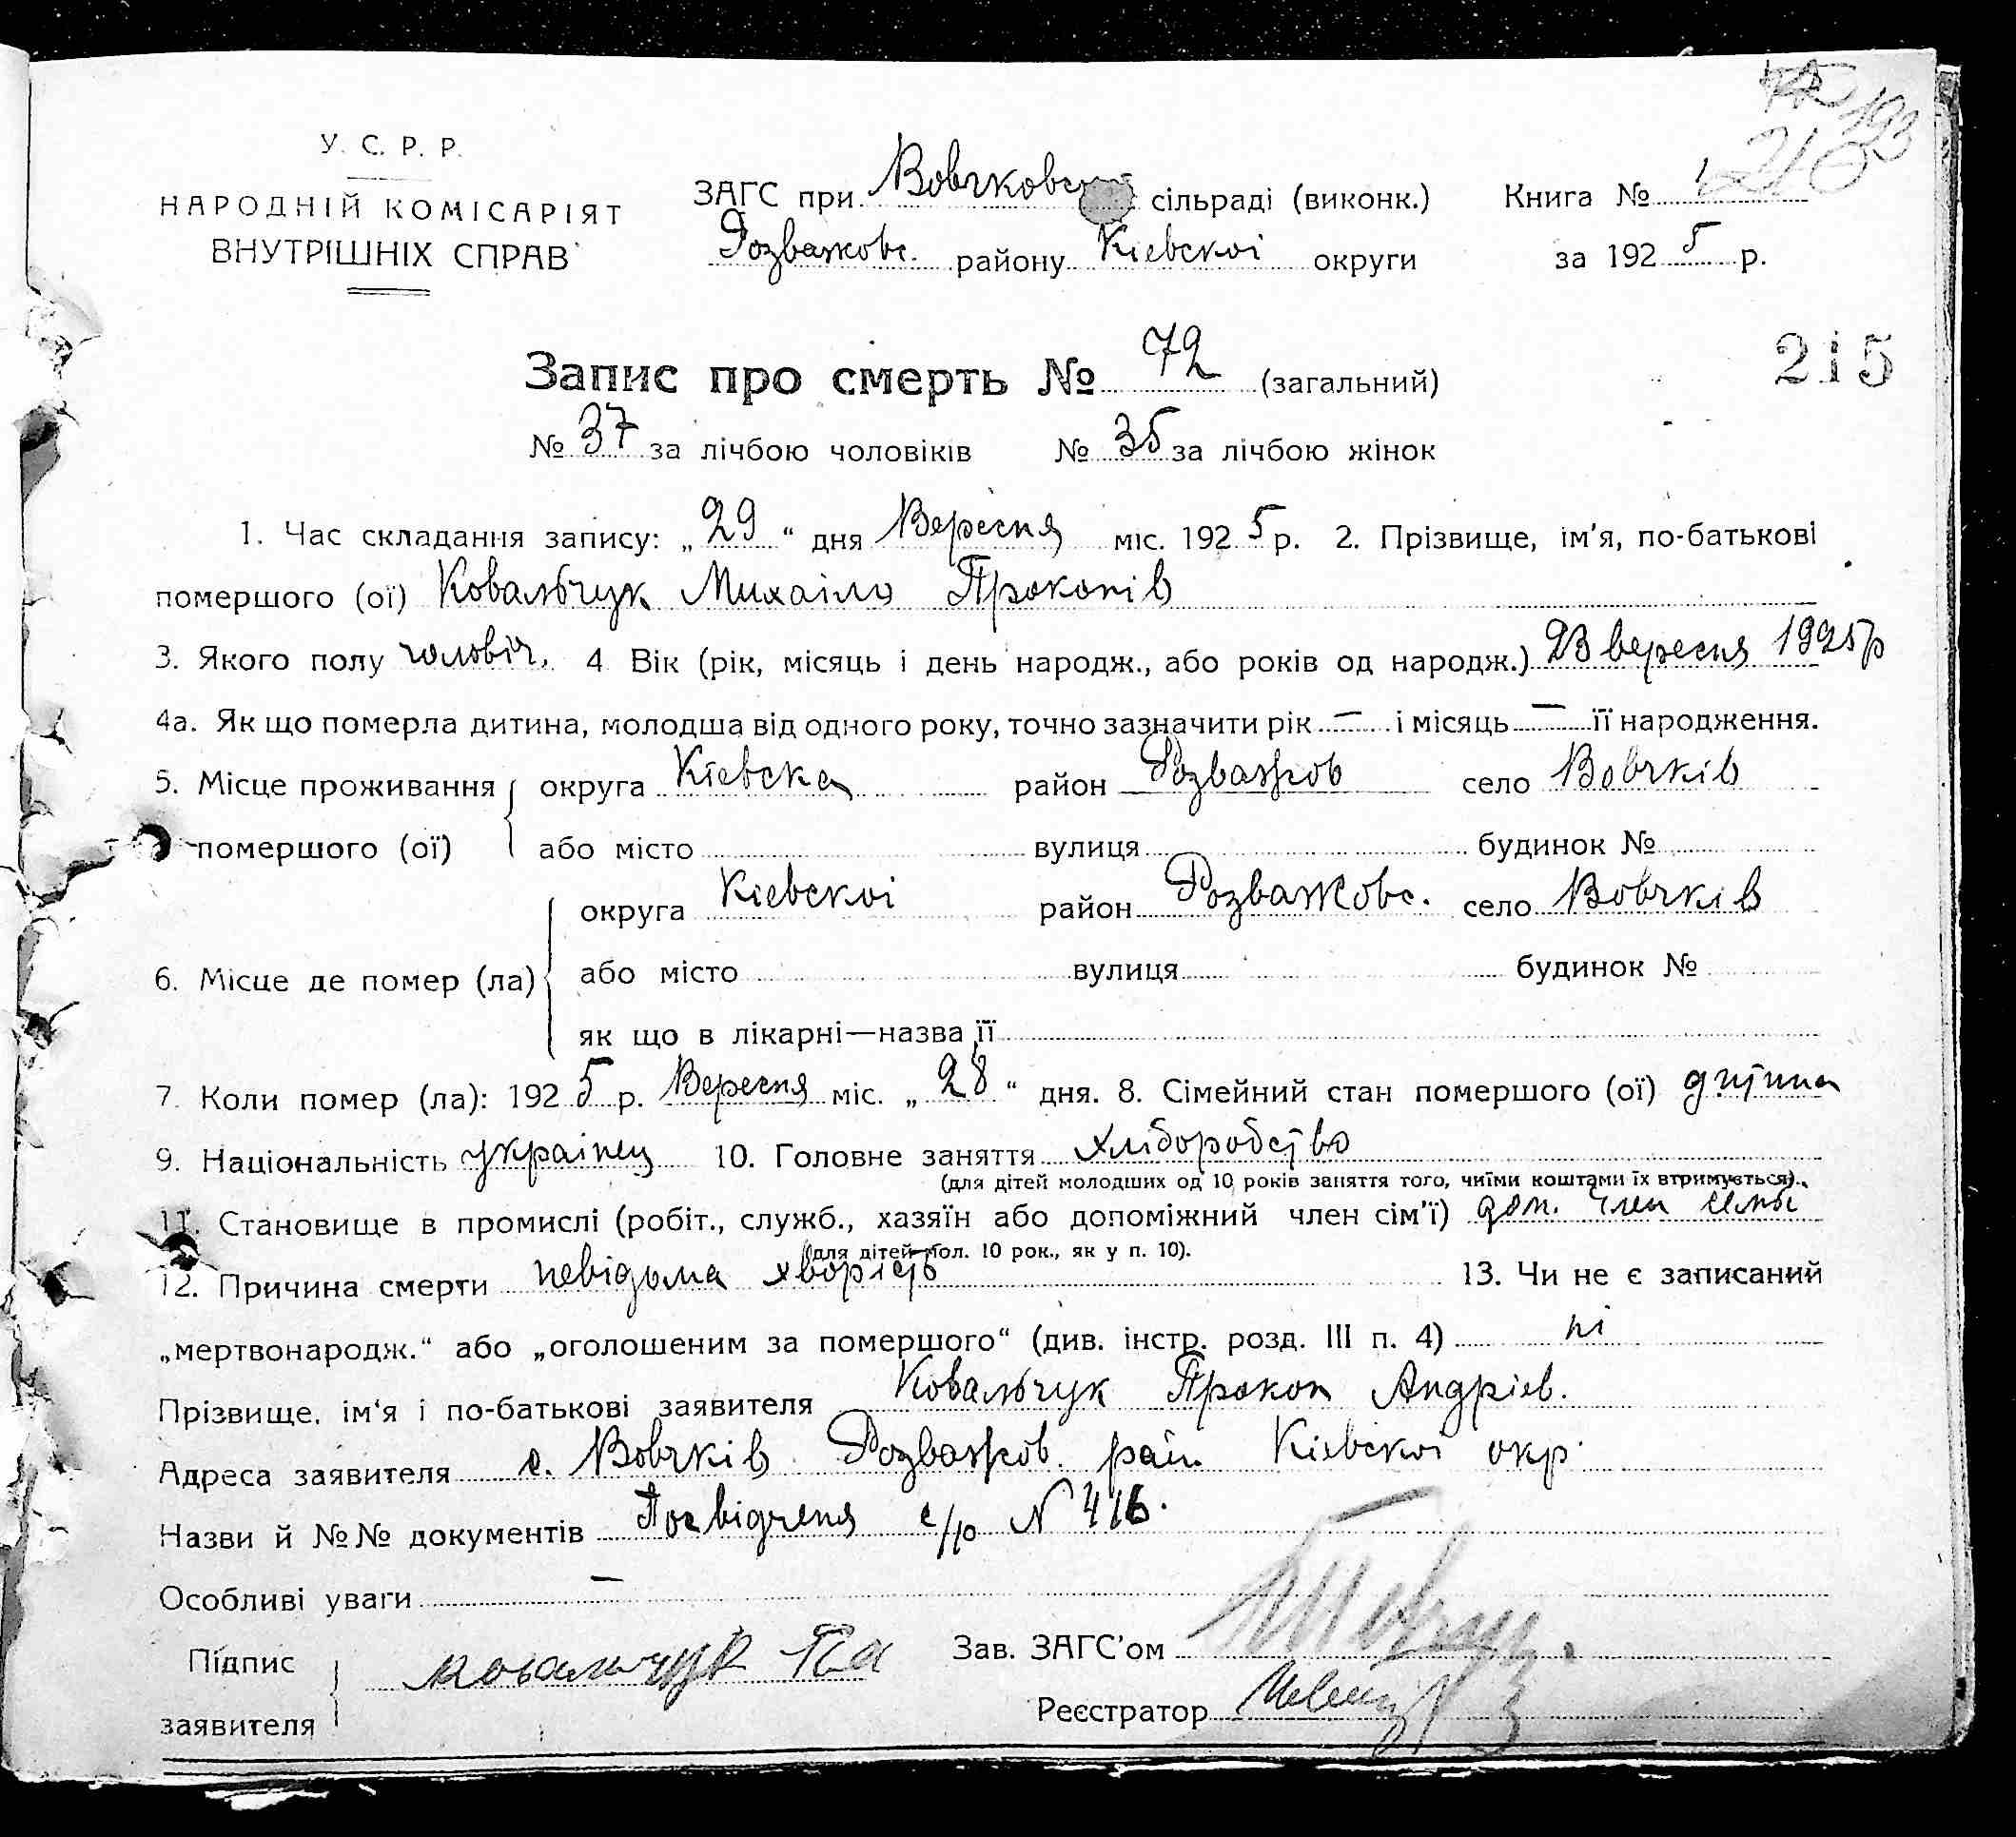 У. С. Р. Р.
НАРОДНІЙ КОМІСАРІЯТ
ВНУТРІШНІХ СПРАВ
ЗАГС при Вовчковс сільраді (виконк.)
Розважовс. району Кіевскоі округи
Книга № 1
за 1925 р.
210
193
215
Запис про смерть № 72 (загальний)
№ 37 за лічбою чоловіків № 35 за лічбою жінок
1. Час складання запису: „29“ дня Вересня міс. 1925 р. 2. Прізвище, ім'я, по-батькові
помершого (ої) Ковальчук Михаіло Прокопів
3. Якого полу чоловіч. 4 Вік (рік, місяць і день народж., або років од народж.) 23 вересня 1925 р
4а. Як що померла дитина, молодша від одного року, точно зазначити рік — і місяць — її народження.
5. Місце проживання округа Кіевска район Розважов село Вовчків
помершого (ої) або місто вулиця будинок №
округа Кіевскоі район Розважовс. село Вовчків
6. Місце де помер (ла) або місто вулиця будинок №
як що в лікарні—назва її
7. Коли помер (ла): 1925 р. Вересня міс. „28“ дня. 8. Сімейний стан помершого (ої) дитина
9. Національність украінец 10. Головне заняття хліборобство
(для дітей молодших од 10 років заняття того, чиїми коштами їх втримується).
11. Становище в промислі (робіт., служб., хазяїн або допоміжний член сім'ї) доп. член семьі
(для дітей мол. 10 рок., як у п. 10).
12. Причина смерти невідома хворість 13. Чи не є записаний
„мертвонародж.“ або „оголошеним за помершого“ (див. інстр. розд. III п. 4) ні
Прізвище, ім'я і по-батькові заявителя Ковальчук Прокоп Андріев.
Адреса заявителя с. Вовчків Розважов. райн Кіевскоі окр.
Назви й №№ документів Посвідченя с/р N 416.
Особливі уваги —
Підпис
заявителя
ковальчук
Зав. ЗАГС'ом
Реєстратор